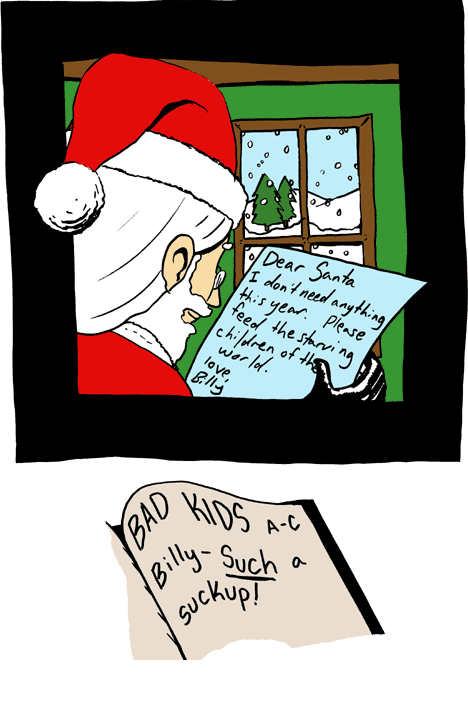 Dear Santa
I don't need anything
this year. Please
feed the starving
children of the
world.
love,
Billy
BAD KIDS A-C
Billy- Such a
suckup!